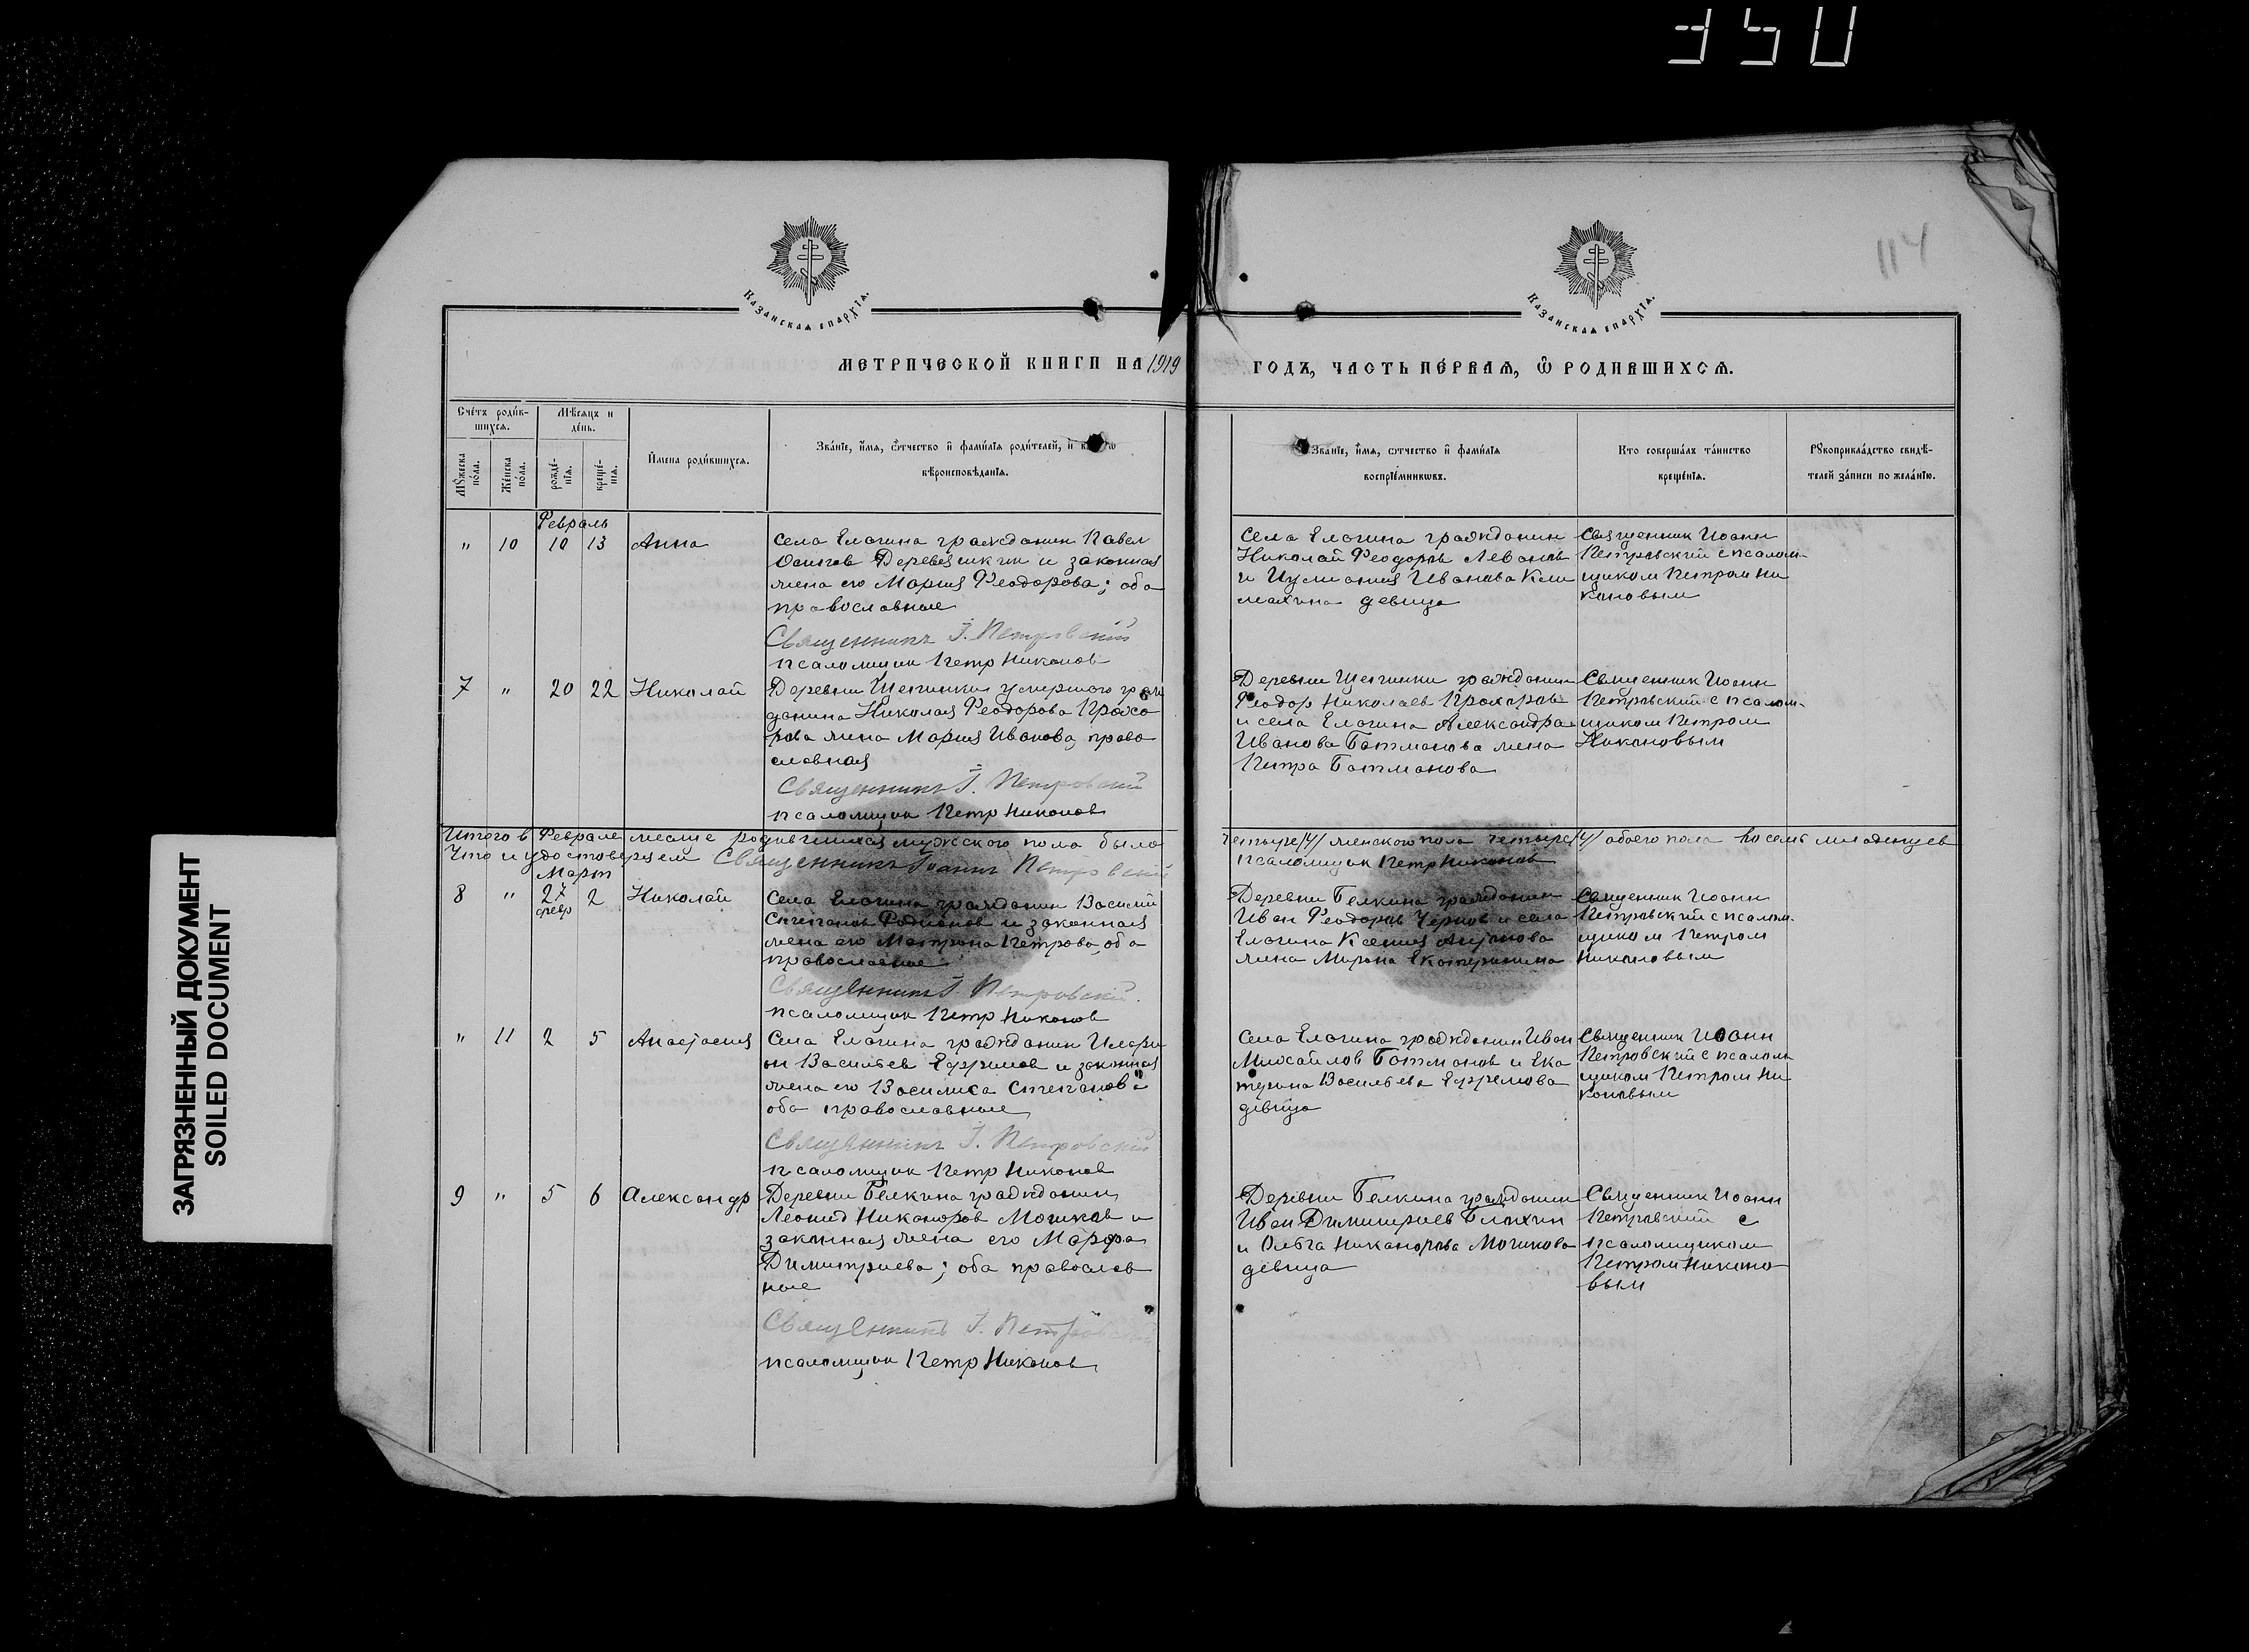 350
114
КАЗАНСКАЯ ЕПАРХІЯ.
КАЗАНСКАЯ ЕПАРХІЯ.
МЕТРИЧЕСКОЙ КНИГИ НА 1919
ГОДЪ, ЧАСТЬ ПЕ́РВАЯ, Ѿ РОДИВШИХСЯ.
Сче́тъ роди́в-
шихся.
Мѣ́сяцъ и
де́нь.
Мꙋ́жеска
по́ла.
Же́нска
по́ла.
рожде́-
нїя.
креще́-
нїя.
И҆мена роди́вшихся.
Зва́нїе, и҆́мя, ѻ҆́тчество и҆ фами́лїя роди́телей, и҆
вѣроисповѣ́данїя.
Зва́нїе, и҆́мя, ѻ҆тчество и҆ фами́лїя
воспрїе́мникѡвъ.
Кто соверша́лъ та́инство
креще́нїя.
Рꙋкоприкла́дство свидѣ́-
телей за́писи по жела́нїю.
Февраль
" 10 10 13 Анна
Села Елагина гражданин Павел
Осипов Деревяшкин и законная
жена его Мария Феодорова; оба
православные
Священникъ І. Петровскій
псаломщик Петр Никонов
Села Елагина гражданин
Николай Феодоров Леванов
и Иулиания Иванова Кли
махина девица
Священник Иоанн
Петровский с псалом-
щиком Петром Ни
коновым
7 " 20 22 Николай
Деревни Щепинки умершого граж
данина Николая Феодорова Прохо
рова жена Мария Иванова, право
славная
Священникъ І. Петровскій
псаломщик Петр Никонов
Деревни Щепинки гражданин
Феодор Николаев Прохоров
и села Елагина Александра
Иванова Батманова жена
Петра Батманова
Священник Иоанн
Петровский с псалом-
щиком Петром
Никоновым
Итого в Феврале месяце родившихся мужского пола было четыре /4/ женского пола четыре /4/ обоего пола восемь младенцев
Что и удостоверяем Священникъ Іоаннъ Петровскій псаломщик Петр Никонов
Март
8 " 27 февр 2 Николай
Села Елагина гражданин Василий
Степанов Родионов и законная
жена его Матрона Петрова, оба
православные
Священникъ І. Петровскій.
псаломщик Петр Никонов
Деревни Белкина гражданин
Иван Феодоров Чернов и села
Елагина Ксения
жена Мирона Екатеринина
Священник Иоанн
Петровский с псалом-
щиком Петром
Никоновым
" 11 2 5 Анастасия
Села Елагина гражданин Илари
он Васильев Ефримов и законная
жена его Василиса Степанова
оба православные
Священникъ І. Петровскій
псаломщик Петр Никонов
Села Елагина гражданин Иван
Михайлов Батманов и Ека
терина Васильева Ефремова
девица
Священник Иоанн
Петровский с псалом
щиком Петром Ни
коновым
9 " 5 6 Александр
Деревни Белкина гражданин
Леонид Никаноров Мошков и
законная жена его Марфа
Димитриева; оба православ
ные
Священникъ І. Петровскій
псаломщик Петр Никонов
Деревни Белкина гражданин
Иван Димитриев Блохин
и Ольга Никанорова Мошкова
девица
Священник Иоанн
Петровский с
псаломщиком
Петром Никоно
вым
ЗАГРЯЗНЕННЫЙ ДОКУМЕНТ
SOILED DOCUMENT